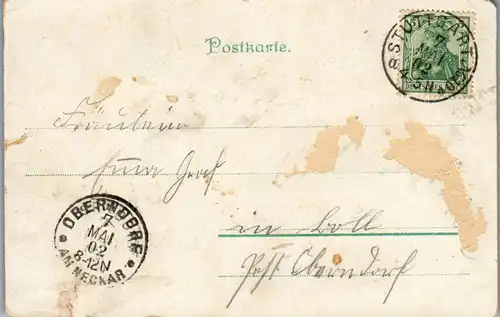 Postkarte.
STUTTGART
7
MAI
02
Fräulein
Graf
in Boll
Post Oberndorf
OBERNDORF
7
MAI
02
8-12N
AM NECKAR